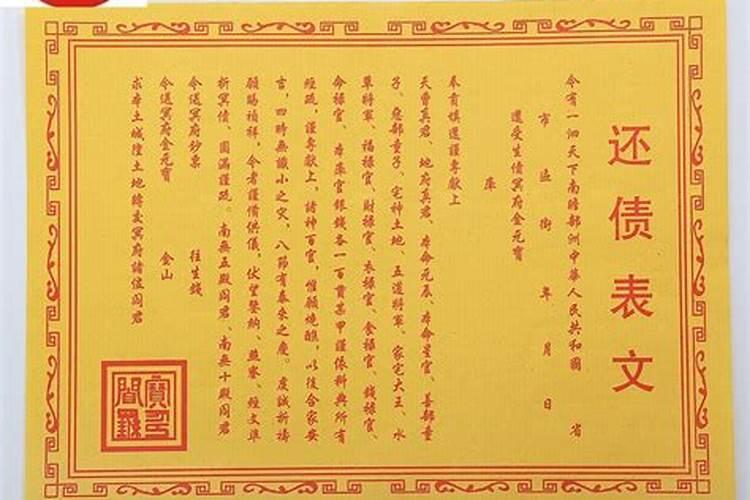 还债表文
今有一泗天下南瞻部洲中華人民共和國 省
市 區 街 年 月 日
還受生債冥府金元寶
庫
奉百填還謹專献上
天曹真君、地府真君、本命元辰、本命星官、善部童
子、惡部童子、宅神土地、五道將軍、家宅大王、水
草將軍、福禄官、財禄官、衣禄官、食禄官、錢禄官、
命禄官、本庫官銀錢各一百貫某甲謹依科典所有
經疏，謹專献上，諸神百官，惟願燒醮，以後合家安
吉，四時無識小之灾，八節有泰來之慶。虔誠祈禱
願賜禎祥，令者謹備供儀，伏望鑒納、并、經文準
折冥債、圆滿謹疏。南無五殿阎君、南無十殿阎君
令送冥府鈔票 往生錢
令送冥府金元寶 金山
求本土城隍土地轉交冥府諸位阎君